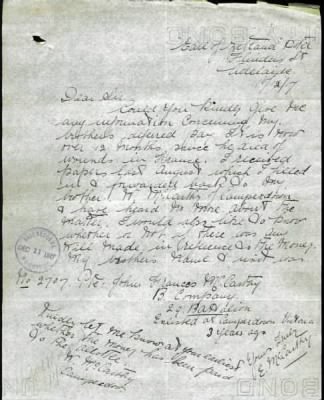 Earl of Zetland Htl
Flinders St
Adelaide
Dear Sir
Could You Kindly Give Me
any information Concerning My
brothers defered Pay. It is now
over 12 months since he died of
wounds in France. I received
papers last August which I filled
in & forwarded back to My
brother W. McCarthy Camperdown
& have heard no more about the
matter. I would also like to know
whether or not there was any
Will made in reference to the Money.
My brothers Name & unit was
No 2707. Pte. John Frances McCarthy
B Company
29 Battalion
Enlisted at Camperdown Victoria
3 years ago
Kindly let me know at your earliest
whether the money has been paid
to the
W McCarthy
Camperdown
Yours Truly
E McCarthy
DEC 21 1917